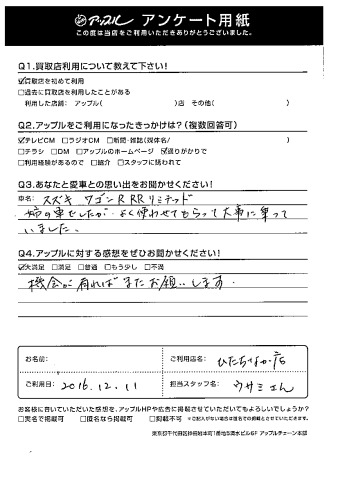 アップル アンケート用紙
この度は当店をご利用いただきありがとうございました。
Q1.買取店利用について教えて下さい!
☑買取店を初めて利用
□過去に買取店を利用したことがある
利用した店舗： アップル( )店 その他( )
Q2.アップルをご利用になったきっかけは?(複数回答可)
☑テレビCM □ラジオCM □新聞・雑誌(媒体名/ )
□チラシ □DM □アップルのホームページ ☑通りがかりで
□利用経験があるので □紹介 □スタッフに誘われて
Q3.あなたと愛車との思い出をお聞かせください!
車名： スズキ ワゴンR RRリミテッド
姉の車でしたが よく使わせてもらって大事に乗って
いました.
Q4.アップルに対する感想をぜひお聞かせください!
☑大満足 □満足 □普通 □もう少し □不満
機会が有ればまたお願いします.
お名前： ご利用店名： ひたちなか店
ご利用日： 2016.12.11 担当スタッフ名： ウサミさん
お客様に書いていただいた感想を、アップルHPや広告に掲載させていただいてもよろしいでしょうか?
□実名で掲載可 □匿名なら掲載可 □掲載不可 ※ご記入がない場合は匿名での掲載とさせていただきます。
東京都千代田区神田和泉町1番地5清水ビル6F アップルチェーン本部